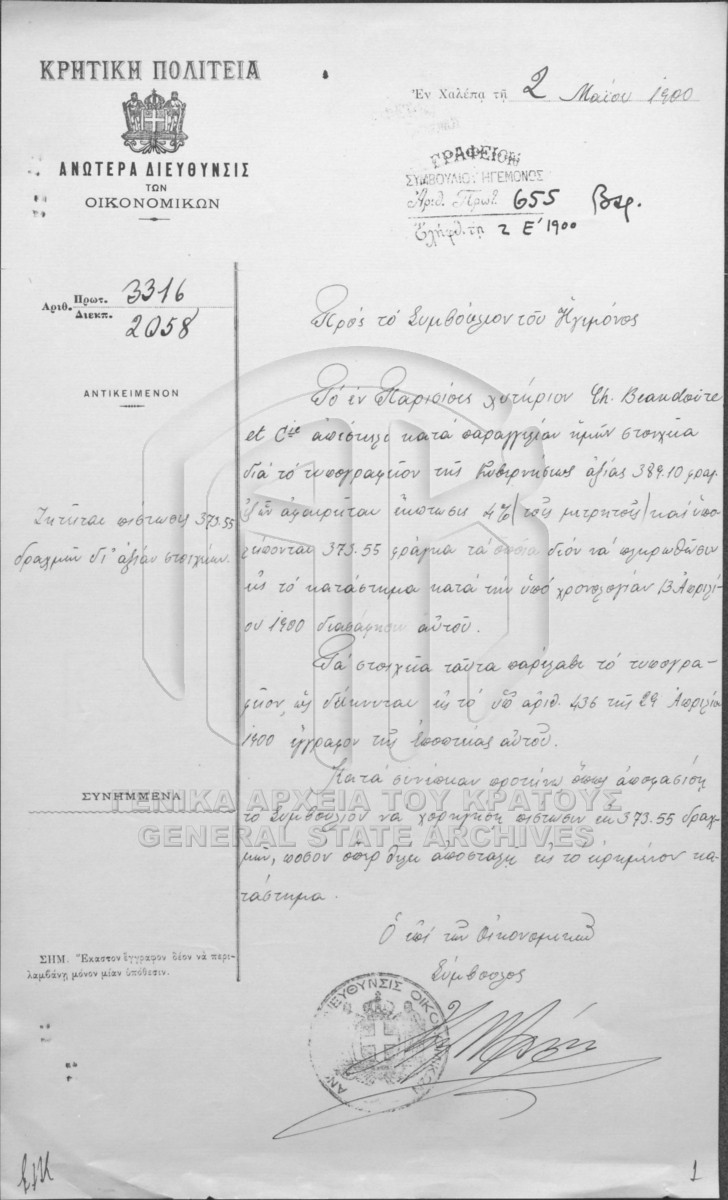 ΚΡΗΤΙΚΗ ΠΟΛΙΤΕΙΑ
ΑΝΩΤΕΡΑ ΔΙΕΥΘΥΝΣΙΣ
ΤΩΝ
ΟΙΚΟΝΟΜΙΚΩΝ
Ἐν Χαλέπᾳ τῇ 2 Μαΐου 1900
ΓΡΑΦΕΙΟΝ
ΣΥΜΒΟΥΛΙΟΥ ΗΓΕΜΟΝΟΣ
Ἀριθ. Πρωτ. 655
Ἐλήφθη τῇ 2 Ε' 1900
Ἀριθ. Πρωτ. 3316
Διεκπ. 2058
ΑΝΤΙΚΕΙΜΕΝΟΝ
Ζητεῖται πίστωσις 373.55
δραχμῶν δι' ἀξίαν στοιχείων.
ΣΥΝΗΜΜΕΝΑ
ΣΗΜ. Ἕκαστον ἔγγραφον δέον νὰ περι-
λαμβάνῃ μόνον μίαν ὑπόθεσιν.
Πρὸς τὸ Συμβούλιον τοῦ Ἡγεμόνος
Τὸ ἐν Παρισίοις χυτήριον Ch. Beaudoire
et Cie ἀπέστειλε κατὰ παραγγελίαν ἡμῶν στοιχεῖα
διὰ τὸ τυπογραφεῖον τῆς Κυβερνήσεως ἀξίας 389.10 φράγ.
ἐξ ὧν ἀφαιρεῖται ἔκπτωσις 4% (τοῖς μετρητοῖς) καὶ ὑπο-
λείπονται 373.55 φράγκα τὰ ὁποῖα δέον νὰ πληρωθῶσιν
εἰς τὸ κατάστημα κατὰ τὴν ὑπὸ χρονολογίαν 13 Ἀπριλί-
ου 1900 διασάφησιν αὐτοῦ.
Τὰ στοιχεῖα ταῦτα παρέλαβε τὸ τυπογρα-
φεῖον, ὡς δείκνυται ἐκ τοῦ ὑπ' ἀριθ. 436 τῆς 29 Ἀπριλίου
1900 ἐγγράφου τῆς ἐποπτείας αὐτοῦ.
Κατὰ συνέπειαν προτείνω ὅπως ἀποφασίσῃ
τὸ Συμβούλιον νὰ χορηγήσῃ πίστωσιν ἐκ 373.55 δραχ-
μῶν, ποσὸν ὅπερ θέλει ἀποσταλῇ εἰς τὸ εἰρημένον κα-
τάστημα.
Ὁ ἐπὶ τῶν Οἰκονομικῶν
Σύμβουλος
ΑΝΩΤΕΡΑ ΔΙΕΥΘΥΝΣΙΣ ΟΙΚΟΝΟΜΙΚΩΝ
ΓΕΝΙΚΑ ΑΡΧΕΙΑ ΤΟΥ ΚΡΑΤΟΥΣ
GENERAL STATE ARCHIVES
1